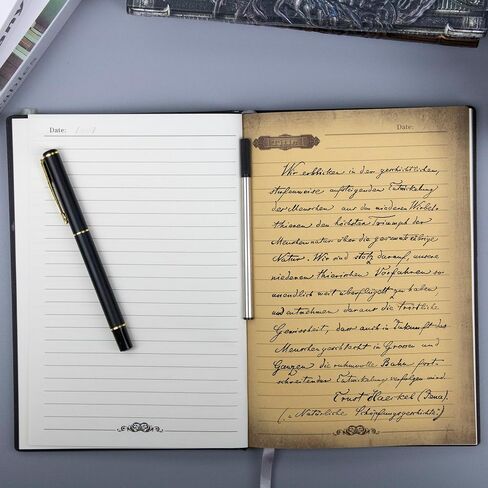 Date:
Date:
Wir erblicken in der geschichtlichen,
stufenweise aufsteigenden Entwickelung
der Menschen aus den niederen Wirbel-
thieren den höchsten Triumph der
Menschennatur über die gesammte übrige
Natur. Wir sind stolz darauf, unsere
niederen thierischen Vorfahren so
unendlich weit überflügelt zu haben
und entnehmen daraus die tröstliche
Gewissheit, dass auch in Zukunft das
Menschengeschlecht im Grossen und
Ganzen die ruhmvolle Bahn fort-
schreitender Entwickelung verfolgen wird.
Ernst Haeckel (Jena).
("Natürliche Schöpfungsgeschichte")